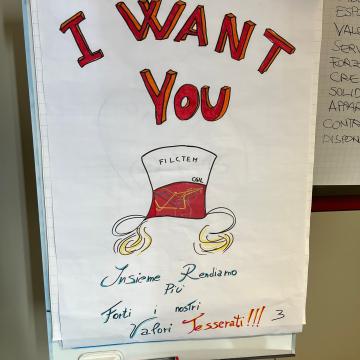 I WANT
YOU
FILCTEM
CGIL
Insieme Rendiamo
Più
Forti i nostri
Valori Tesserati!!!
3
ESPO
VALO
SERV
FORZ
CRE
SOLID
APPAR
CONTR
DISPON